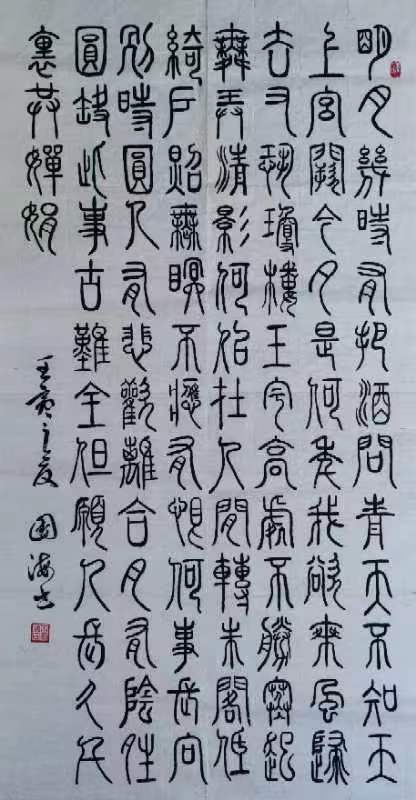 明月幾時有把酒問青天不知天
上宮闕今夕是何年我欲乘風歸
去又恐瓊樓玉宇高處不勝寒起
舞弄清影何似在人間轉朱閣低
綺戶照無眠不應有恨何事長向
別時圓人有悲歡離合月有陰晴
圓缺此事古難全但願人長久千
裏共嬋娟
壬寅之夏 國海书